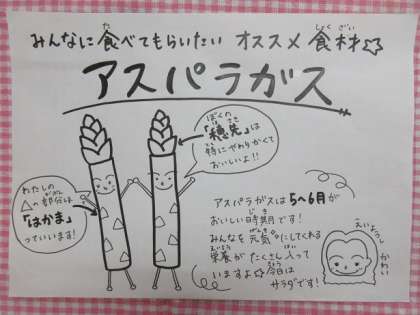 みんなに食べてもらいたい オススメ 食材☆
アスパラガス
ぼくの
「穂先」は
特にやわらかくて
おいしいよ!!
わたしの
△の部分は
「はかま」
っていいます!
アスパラガスは 5〜6月が
おいしい時期です!
みんなを 元気にしてくれる
栄養が たくさん 入って
いますよ☆ 今日は
サラダです!
えいようし